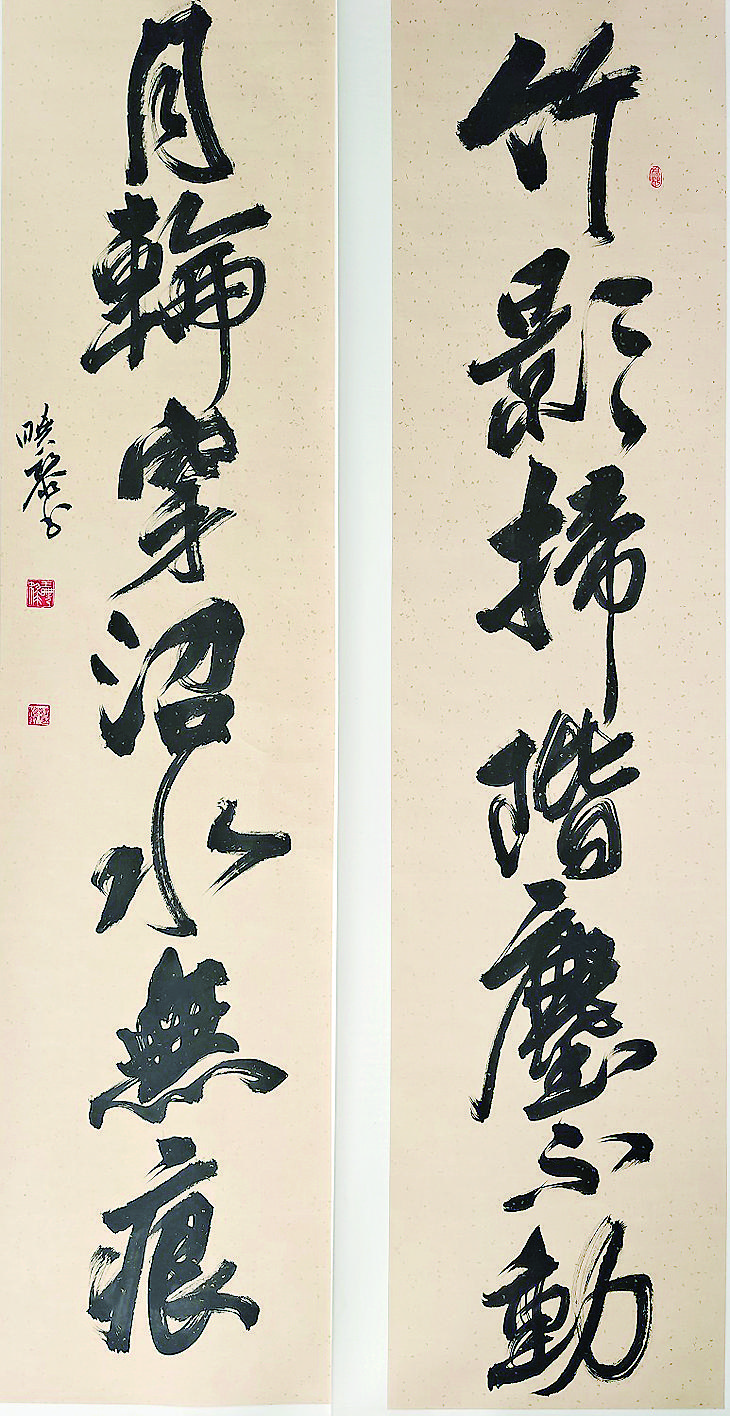 竹影掃階塵不動
月輪穿沼水無痕
映黎书